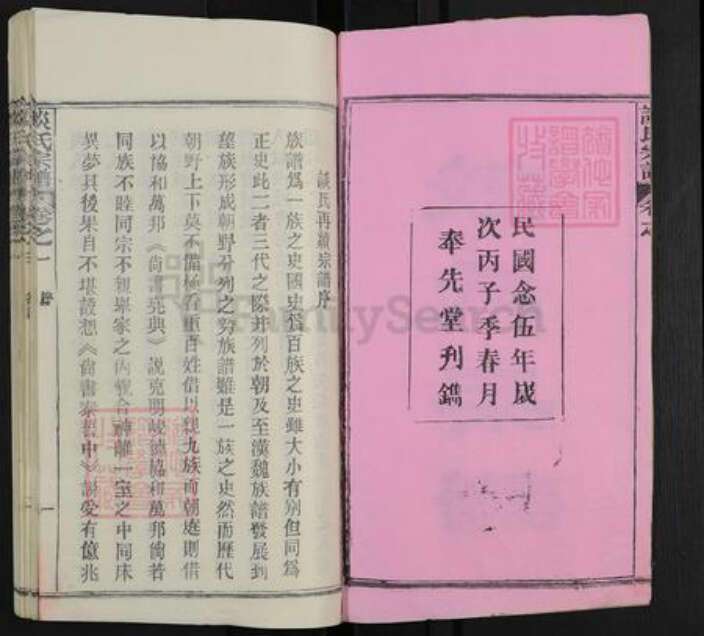 民國念伍年歲
次丙子季春月
奉先堂刋鐫
談氏宗譜
談氏再續宗譜序
族譜爲一族之史國史爲百族之史雖大小有別但同爲
正史此二者三代之際并列於朝及至漢魏族譜發展到
望族形成朝野分列之勢族譜雖是一族之史然而歷代
朝野上下莫不備極看重百姓借以親九族而朝庭則借
以協和萬邦《尙書堯典》說克明峻德協和萬邦倘若
同族不睦同宗不親舉家之內貌合神離一室之中同床
異夢其後果自不堪設想《尙書泰誓中》說受有億兆
談氏宗譜 卷之一
序
一
FamilySearch